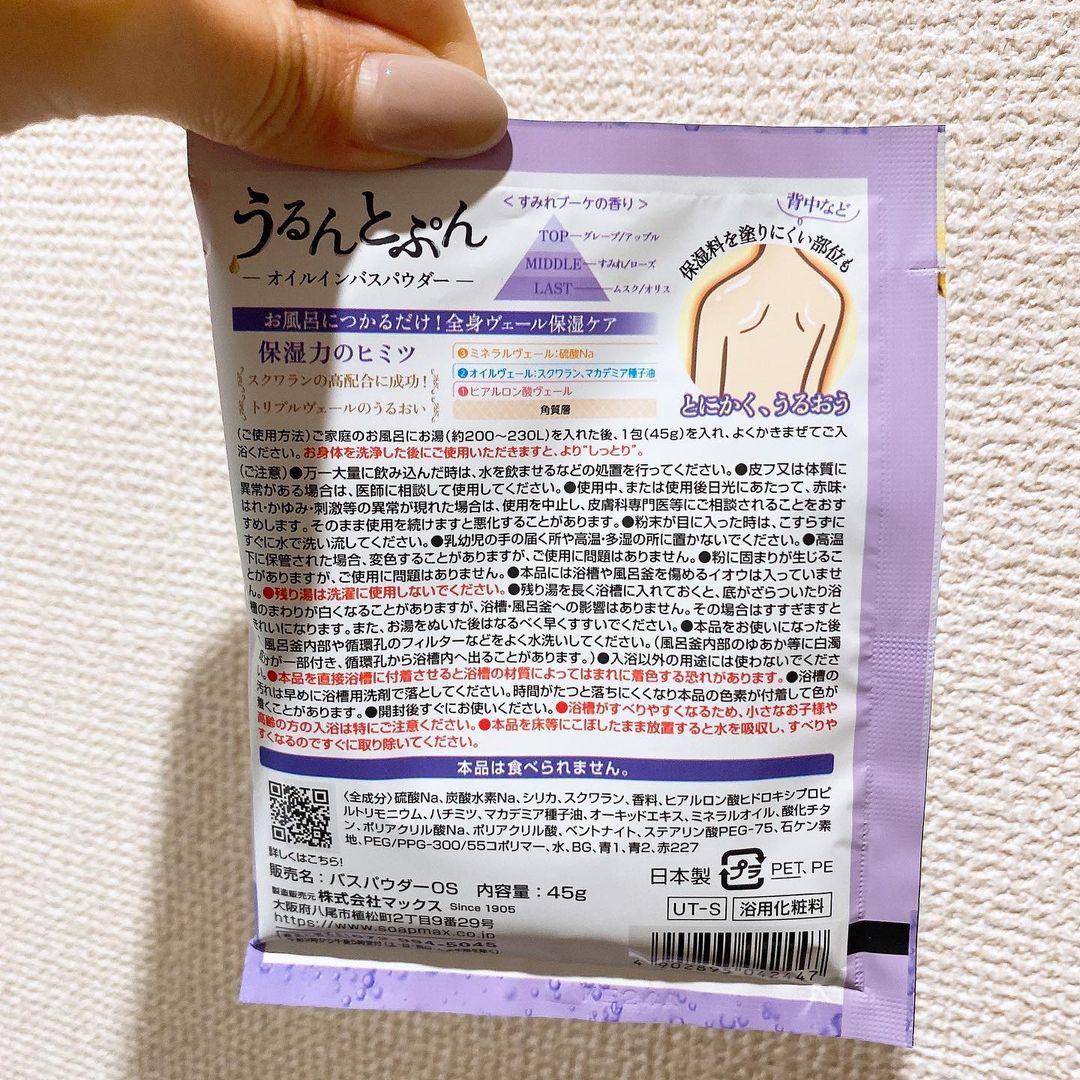 うるんとぷん
オイルインバスパウダー
＜すみれブーケの香り＞
TOP グレープ/アップル
MIDDLE すみれ/ローズ
LAST ムスク/オリス
背中など
保湿料を塗りにくい部位も
とにかく、うるおう
お風呂につかるだけ!全身ヴェール保湿ケア
保湿力のヒミツ
スクワランの高配合に成功!
トリプルヴェールのうるおい
③ミネラルヴェール:硫酸Na
②オイルヴェール:スクワラン、マカデミア種子油
①ヒアルロン酸ヴェール
角質層
〈ご使用方法〉ご家庭のお風呂にお湯(約200〜230L)を入れた後、1包(45g)を入れ、よくかきまぜてご入
浴ください。お身体を洗浄した後にご使用いただきますと、より“しっとり”。
〈ご注意〉●万一大量に飲み込んだ時は、水を飲ませるなどの処置を行ってください。●皮フ又は体質に
異常がある場合は、医師に相談して使用してください。●使用中、または使用後日光にあたって、赤味・
はれ・かゆみ・刺激等の異常が現れた場合は、使用を中止し、皮膚科専門医等にご相談されることをおす
すめします。そのまま使用を続けますと悪化することがあります。●粉末が目に入った時は、こすらずに
すぐに水で洗い流してください。●乳幼児の手の届く所や高温・多湿の所に置かないでください。●高温
下に保管された場合、変色することがありますが、ご使用に問題はありません。●粉に固まりが生じるこ
とがありますが、ご使用に問題はありません。●本品には浴槽や風呂釜を傷めるイオウは入っていませ
ん。●残り湯は洗濯に使用しないでください。●残り湯を長く浴槽に入れておくと、底がざらついたり浴
槽のまわりが白くなることがありますが、浴槽・風呂釜への影響はありません。その場合はすすぎますと
きれいになります。また、お湯をぬいた後はなるべく早くすすいでください。●本品をお使いになった後
、風呂釜内部や循環孔のフィルターなどをよく水洗いしてください。(風呂釜内部のゆあか等に白濁
成分が一部付き、循環孔から浴槽内へ出ることがあります。)●入浴以外の用途には使わないでくださ
い。●本品を直接浴槽に付着させると浴槽の材質によってはまれに着色する恐れがあります。●浴槽の
汚れは早めに浴槽用洗剤で落としてください。時間がたつと落ちにくくなり本品の色素が付着して色が
着くことがあります。●開封後すぐにお使いください。●浴槽がすべりやすくなるため、小さなお子様や
高齢の方の入浴は特にご注意ください。●本品を床等にこぼしたまま放置すると水を吸収し、すべりや
すくなるのですぐに取り除いてください。
本品は食べられません。
〈全成分〉硫酸Na、炭酸水素Na、シリカ、スクワラン、香料、ヒアルロン酸ヒドロキシプロピ
ルトリモニウム、ハチミツ、マカデミア種子油、オーキッドエキス、ミネラルオイル、酸化チタ
ン、ポリアクリル酸Na、ポリアクリル酸、ベントナイト、ステアリン酸PEG-75、石ケン素
地、PEG/PPG-300/55コポリマー、水、BG、青1、青2、赤227
詳しくはこちら!
販売名:バスパウダーOS 内容量:45g
製造販売元 株式会社マックス Since 1905
大阪府八尾市植松町2丁目9番29号
https://www.soapmax.co.jp
072-994-5045
日本製 プラ PET、PE
UT-S 浴用化粧料
4 902895 042447